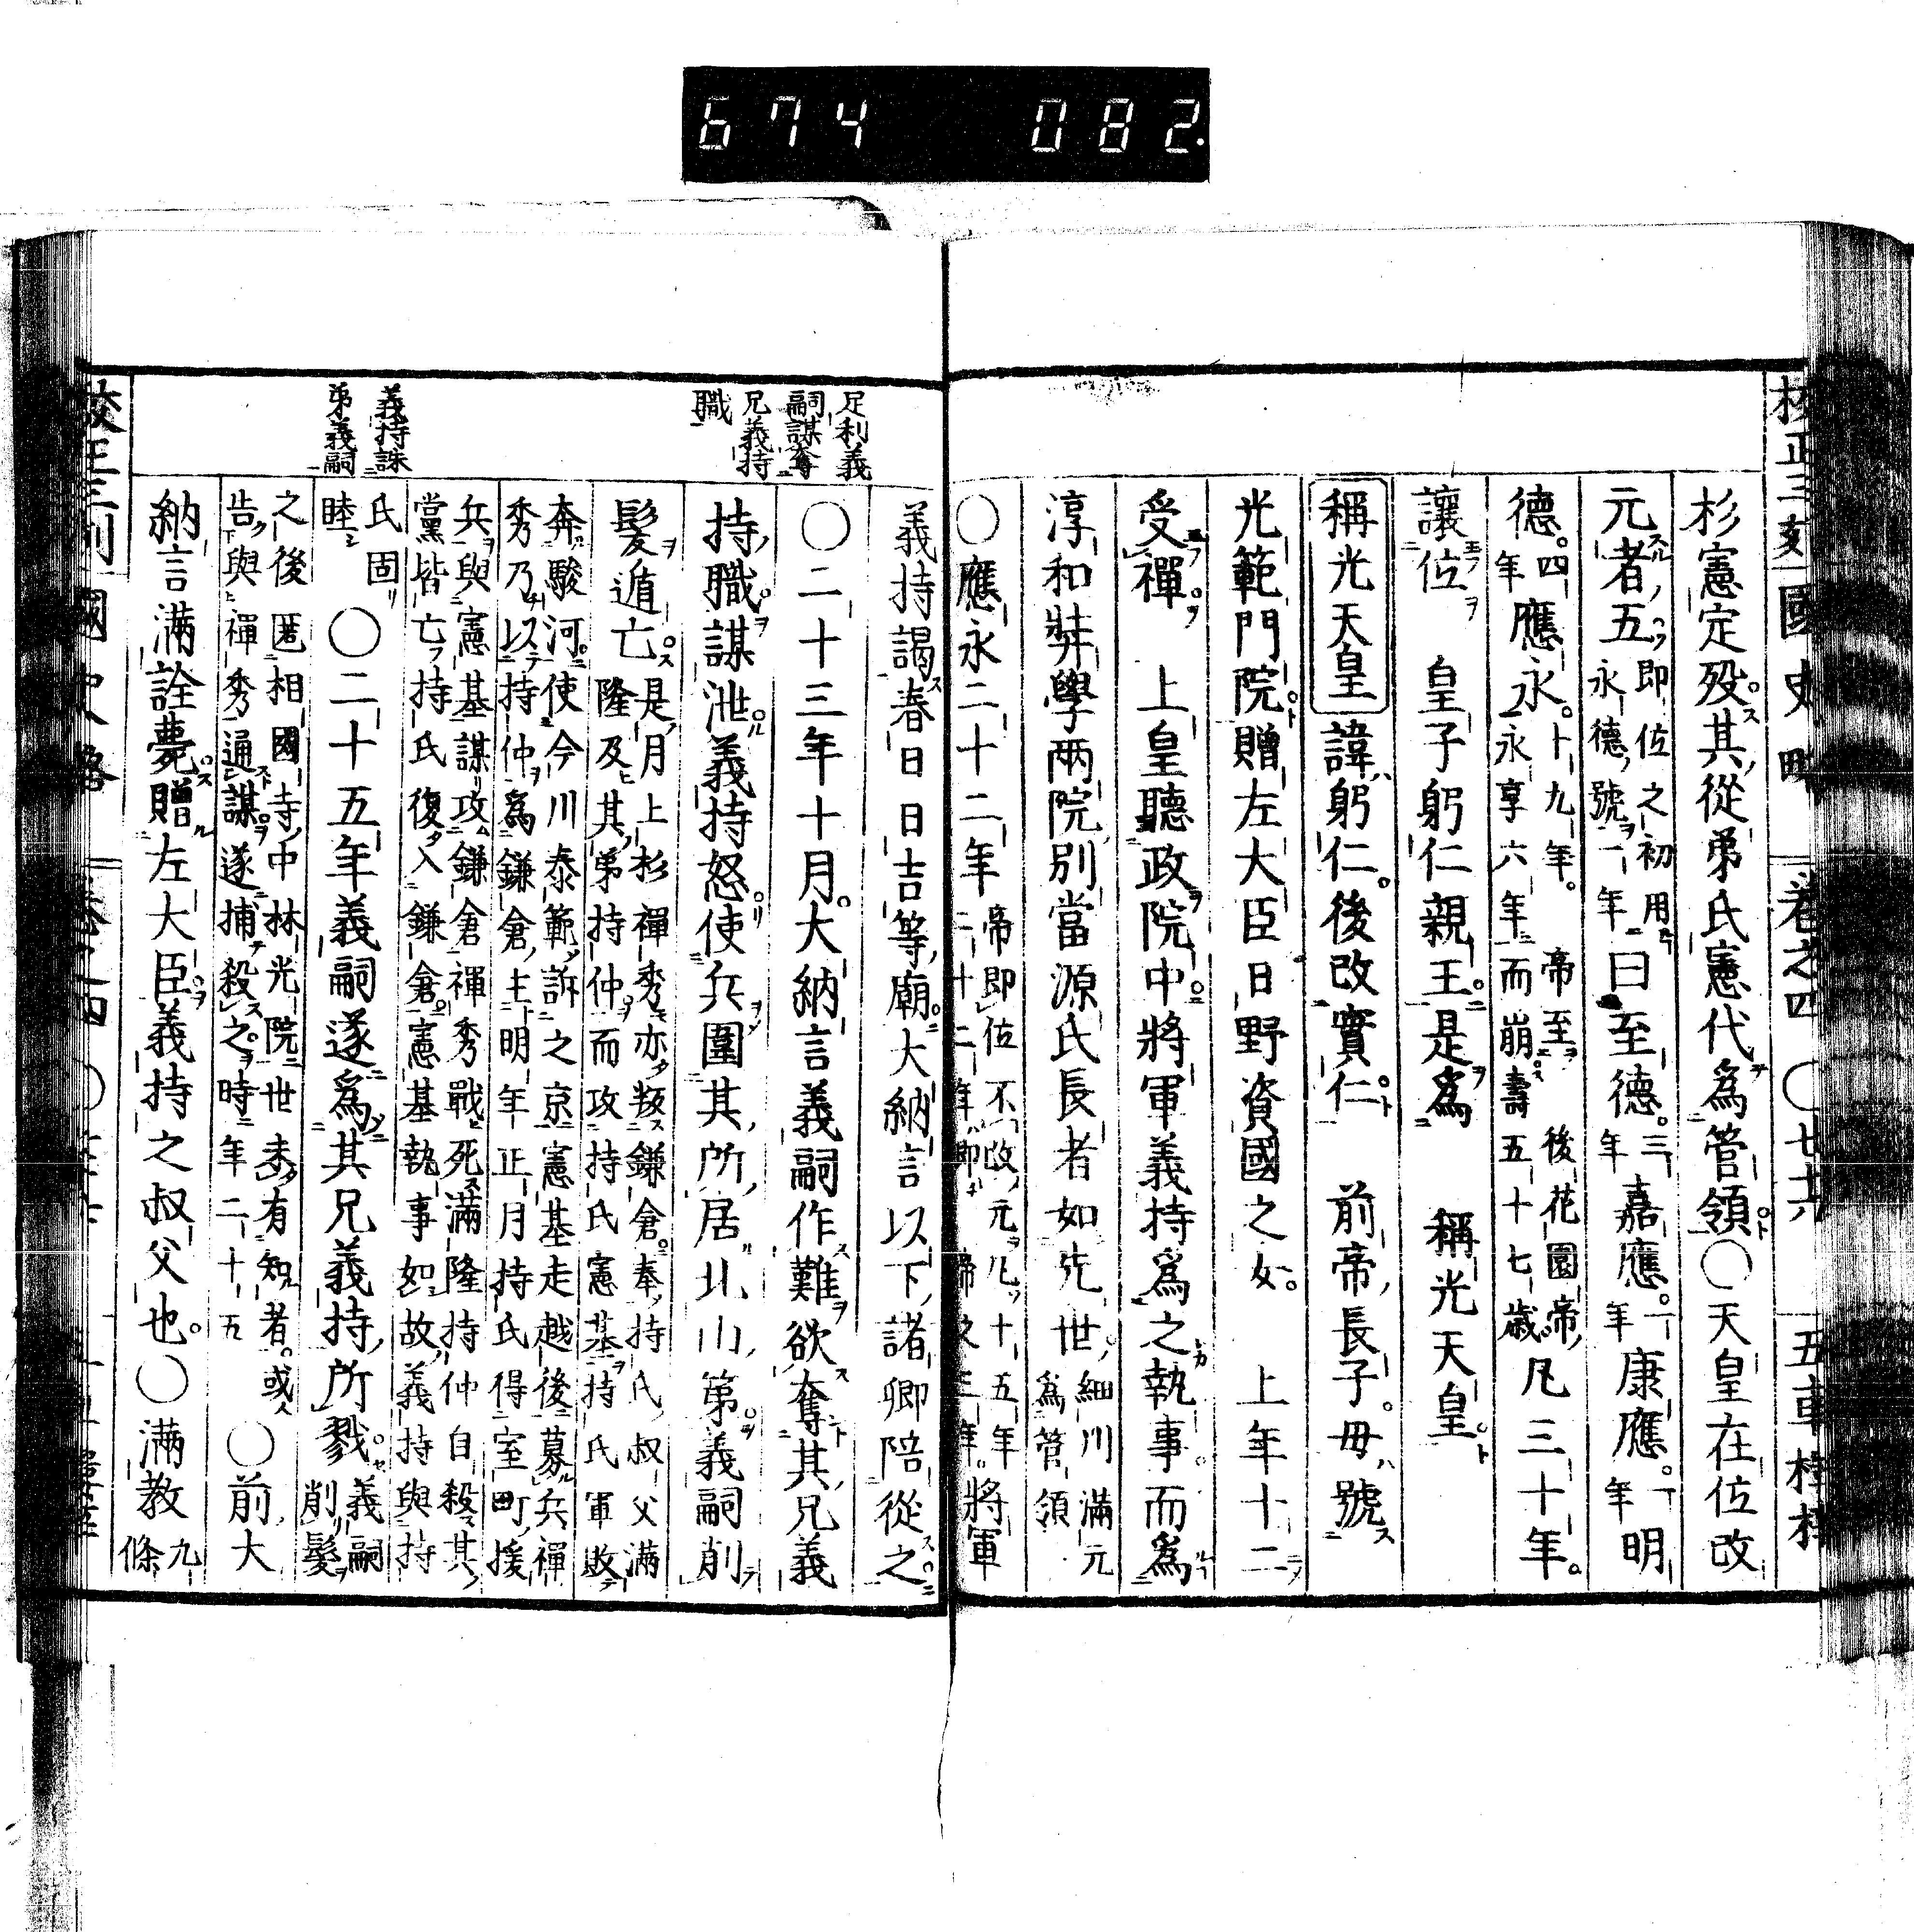 674 082.
校正三刻國史略 卷之四 〇七十六 五車樓梓
杉憲定歿其從弟氏憲代爲管領〇天皇在位改
元者五 即位之初用
永德號一年 曰至德 三
年 嘉應 一
年 康應 一
年 明
德 四
年 應永 十九年 帝至
永享六年而崩壽 後花園帝
五十七歲 凡三十年
讓位 皇子躬仁親王是爲 稱光天皇
稱光天皇 諱躬仁後改實仁 前帝長子母號
光範門院贈左大臣日野資國之女 上年十二
受禪 上皇聽政院中將軍義持爲之執事而爲
淳和弉學兩院別當源氏長者如先世 細川滿元
爲管領
〇應永二十二年 帝即位不改元凡十五年
二十二年即 將軍
足利義
嗣謀奪
兄義持
職
義持謁春日日吉等廟大納言以下諸卿陪從之
〇二十三年十月大納言義嗣作難欲奪其兄義
持職謀泄義持怒使兵圍其所居北小第義嗣削
髮遁亡 是月上杉禪秀亦叛鎌倉奉持氏叔父滿
隆及其弟持仲而攻持氏憲基持氏軍敗
奔駿河使今川泰範訴之京憲基走越後募兵禪
秀乃以持仲爲鎌倉主明年正月持氏得室町援
兵與憲基謀攻鎌倉禪秀戰死滿隆持仲自殺其
黨皆亡持氏復入鎌倉憲基執事如故義持與持
義持誅
弟義嗣
氏固
睦 〇二十五年義嗣遂爲其兄義持所戮 義嗣
削髮
之後匿相國寺中林光院世未有知者或
告與禪秀通謀遂捕殺之時年二十五 〇前大
納言滿詮薨贈左大臣義持之叔父也〇滿教 九
條